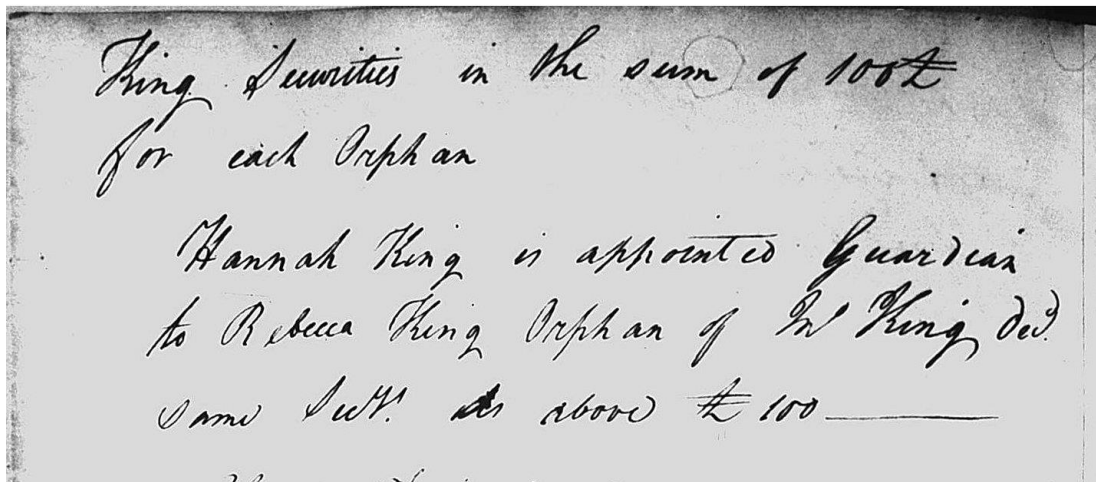 King Securities in the sum of 100£
for each Orphan
Hannah King is appointed Guardian
to Rebecca King Orphan of Wm King Decd.
same Secys. as above £100